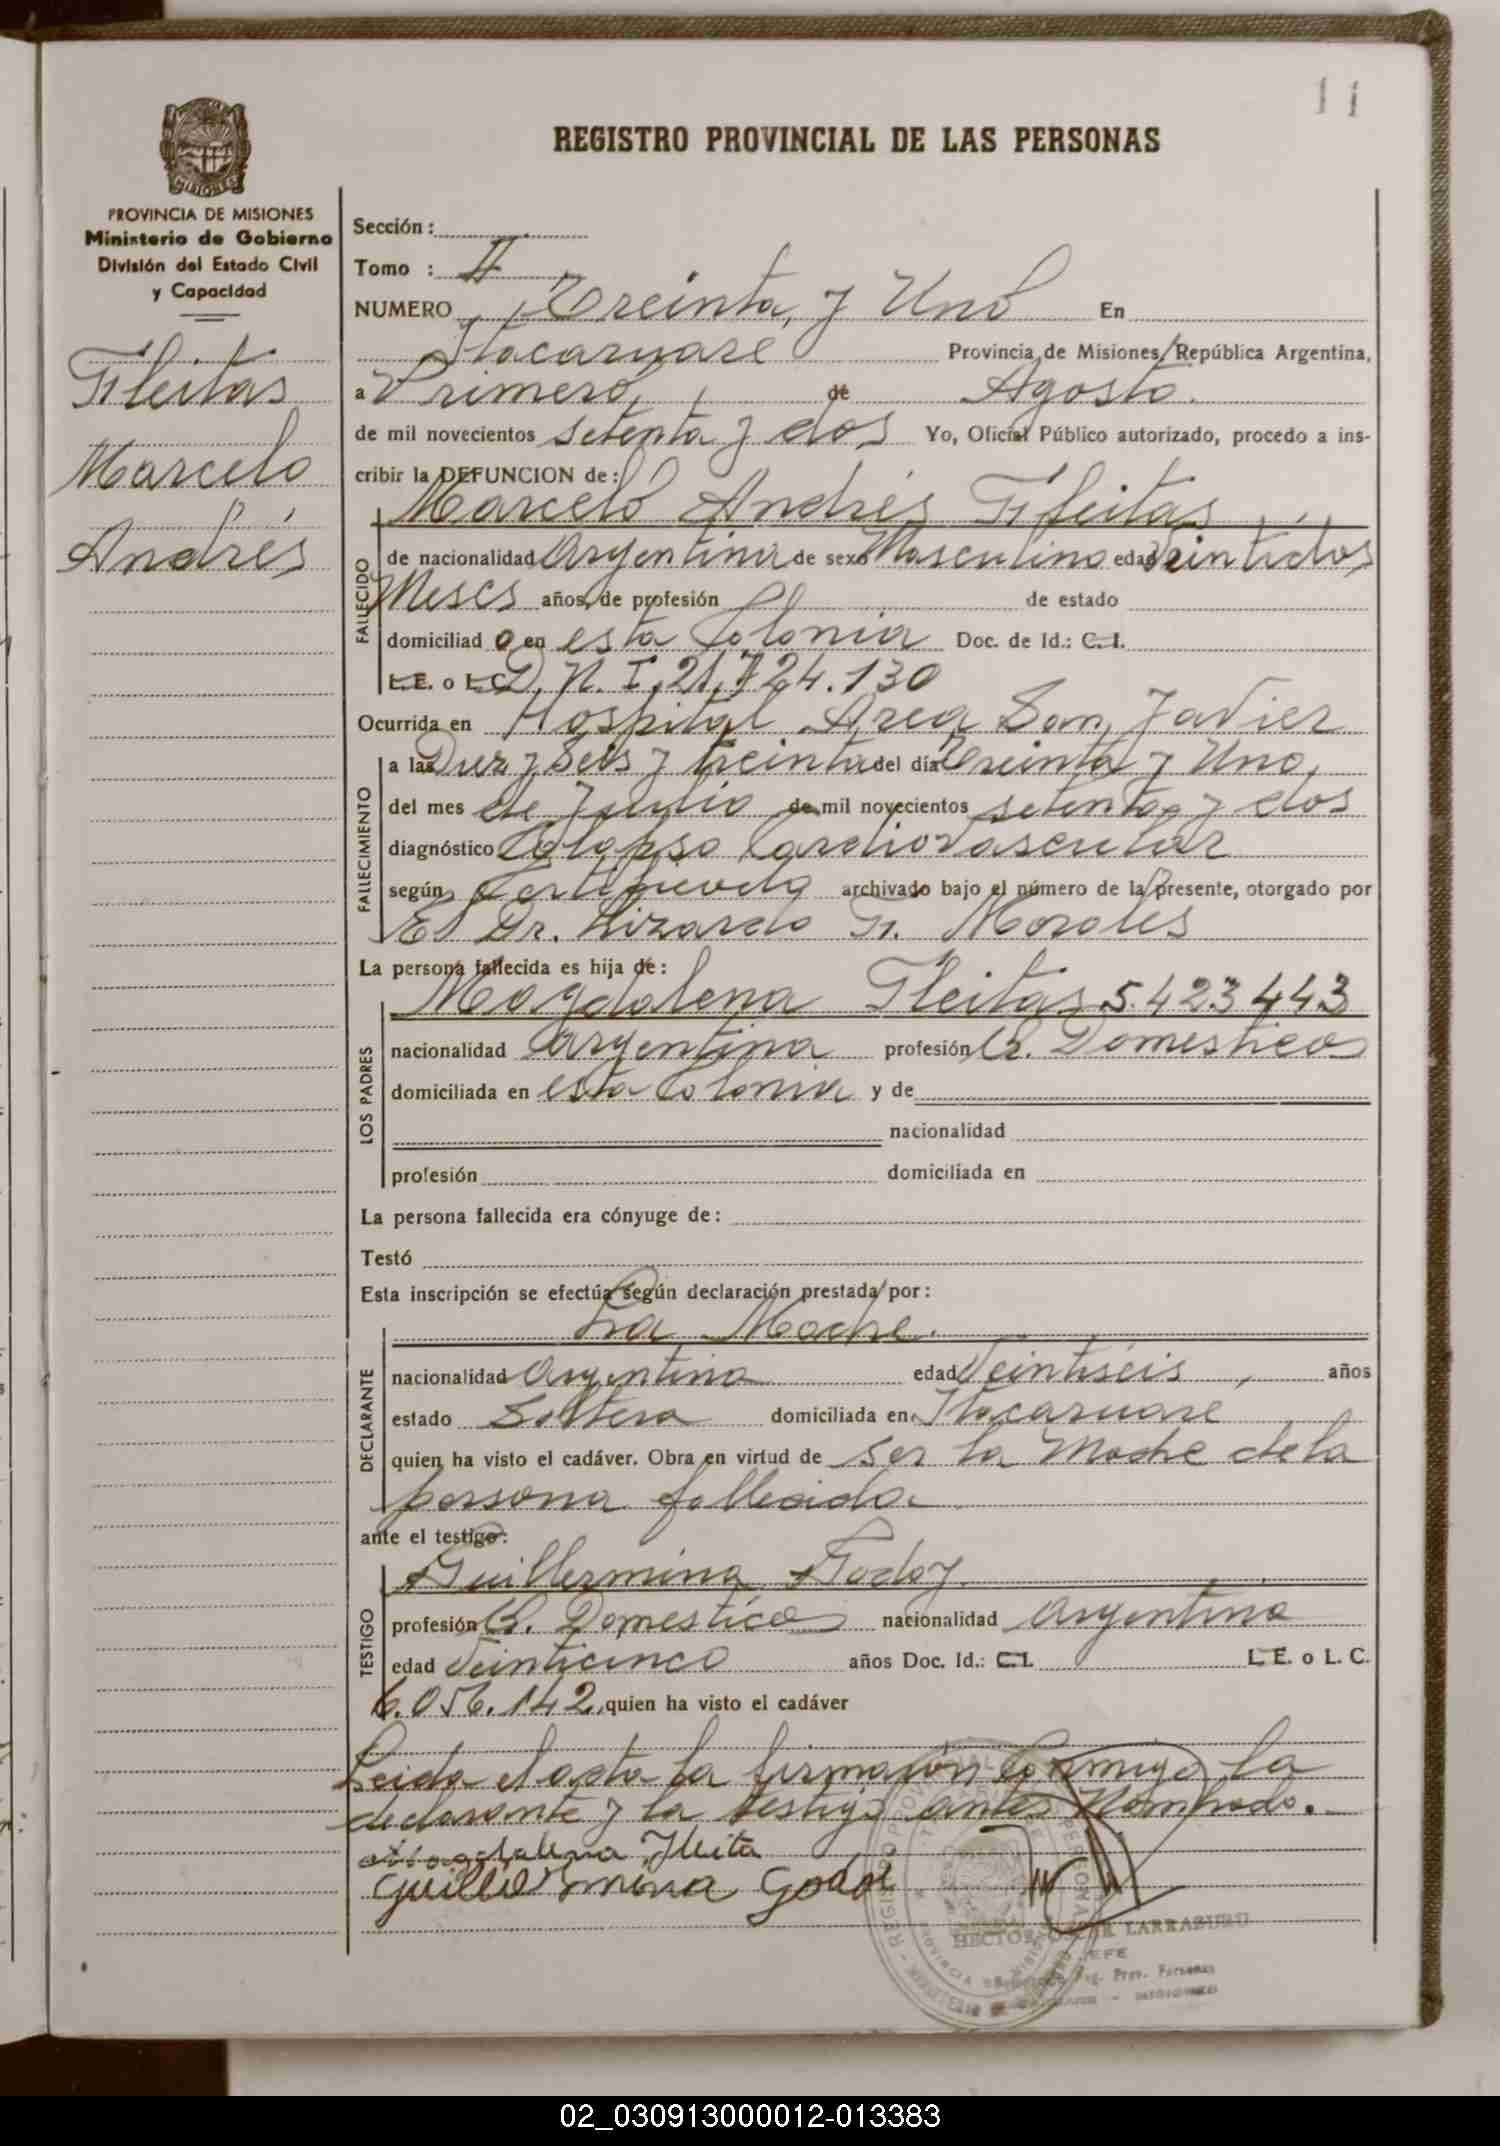 11
REGISTRO PROVINCIAL DE LAS PERSONAS
PROVINCIA DE MISIONES
Ministerio de Gobierno
División del Estado Civil
y Capacidad
Fleitas
Marcelo
Andrés
Sección:
Tomo : II
NUMERO Treinta, y Uno En
Itacaruare Provincia de Misiones, República Argentina,
a Primero, de Agosto.
de mil novecientos setenta y dos Yo, Oficial Público autorizado, procedo a ins-
cribir la DEFUNCION de:
Marcelo Andrés Fleitas
FALLECIDO
de nacionalidad Argentina de sexo Masculino edad Veintidos
Meses años, de profesión de estado
domiciliad o en esta Colonia Doc. de Id.: C.I.
L.E. o L.C. D.N.I. 21.724.130
Ocurrida en Hospital Area San Javier
FALLECIMIENTO
a las Diez y Seis y treinta del día Treinta y Uno,
del mes de Julio de mil novecientos setenta y dos
diagnóstico Colapso Cardiovascular
según Certificado archivado bajo el número de la presente, otorgado por
El Dr. Lizardo Morales
La persona fallecida es hija de:
LOS PADRES
Magdalena Fleitas 5.423.443
nacionalidad argentina profesión Q. Domesticos
domiciliada en esta Colonia y de
nacionalidad
profesión domiciliada en
La persona fallecida era cónyuge de:
Testó
Esta inscripción se efectúa según declaración prestada por:
La Madre.
DECLARANTE
nacionalidad Argentina edad Veintiséis, años
estado Soltera domiciliada en Itacaruare
quien ha visto el cadáver. Obra en virtud de ser la Madre de la
persona fallecida
ante el testigo:
TESTIGO
Guillermina Godoy
profesión Q. Domesticos nacionalidad Argentina
edad Veinticinco años Doc. Id.: C.I. L.E. o L.C.
6.056.142, quien ha visto el cadáver
Leida el acta la firmaron Conmigo la
declarante y la testigo antes Nombrado.
Magdalena Fleita
Guillermina Godoi
HECTOR OSCAR LARRABURU
JEFE
Reg. Prov. Personas
02_030913000012-013383